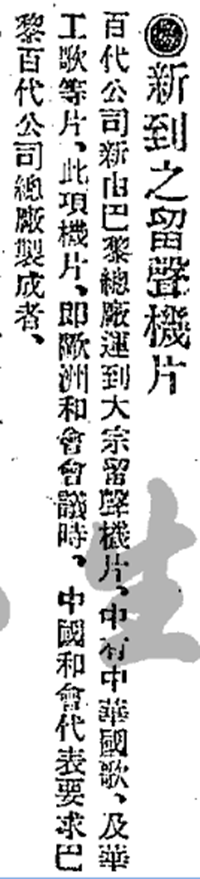 新到之留聲機片
百代公司新由巴黎總廠運到大宗留聲機片、中有中華國歌、及華
工歌等片、此項機片、即歐洲和會會議時、中國和會代表要求巴
黎百代公司總廠製成者、
生